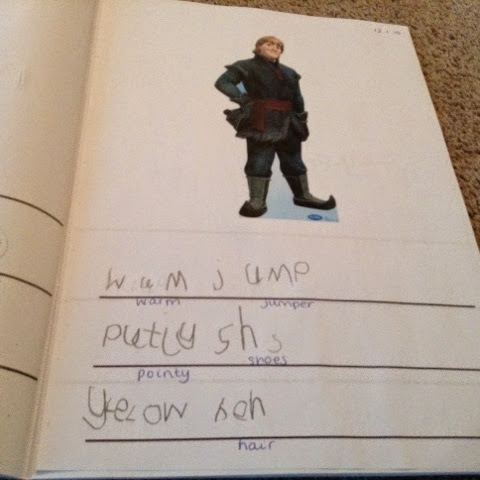 wum jump
warm jumper
putiy shs
pointy shoes
yelow heh
hair